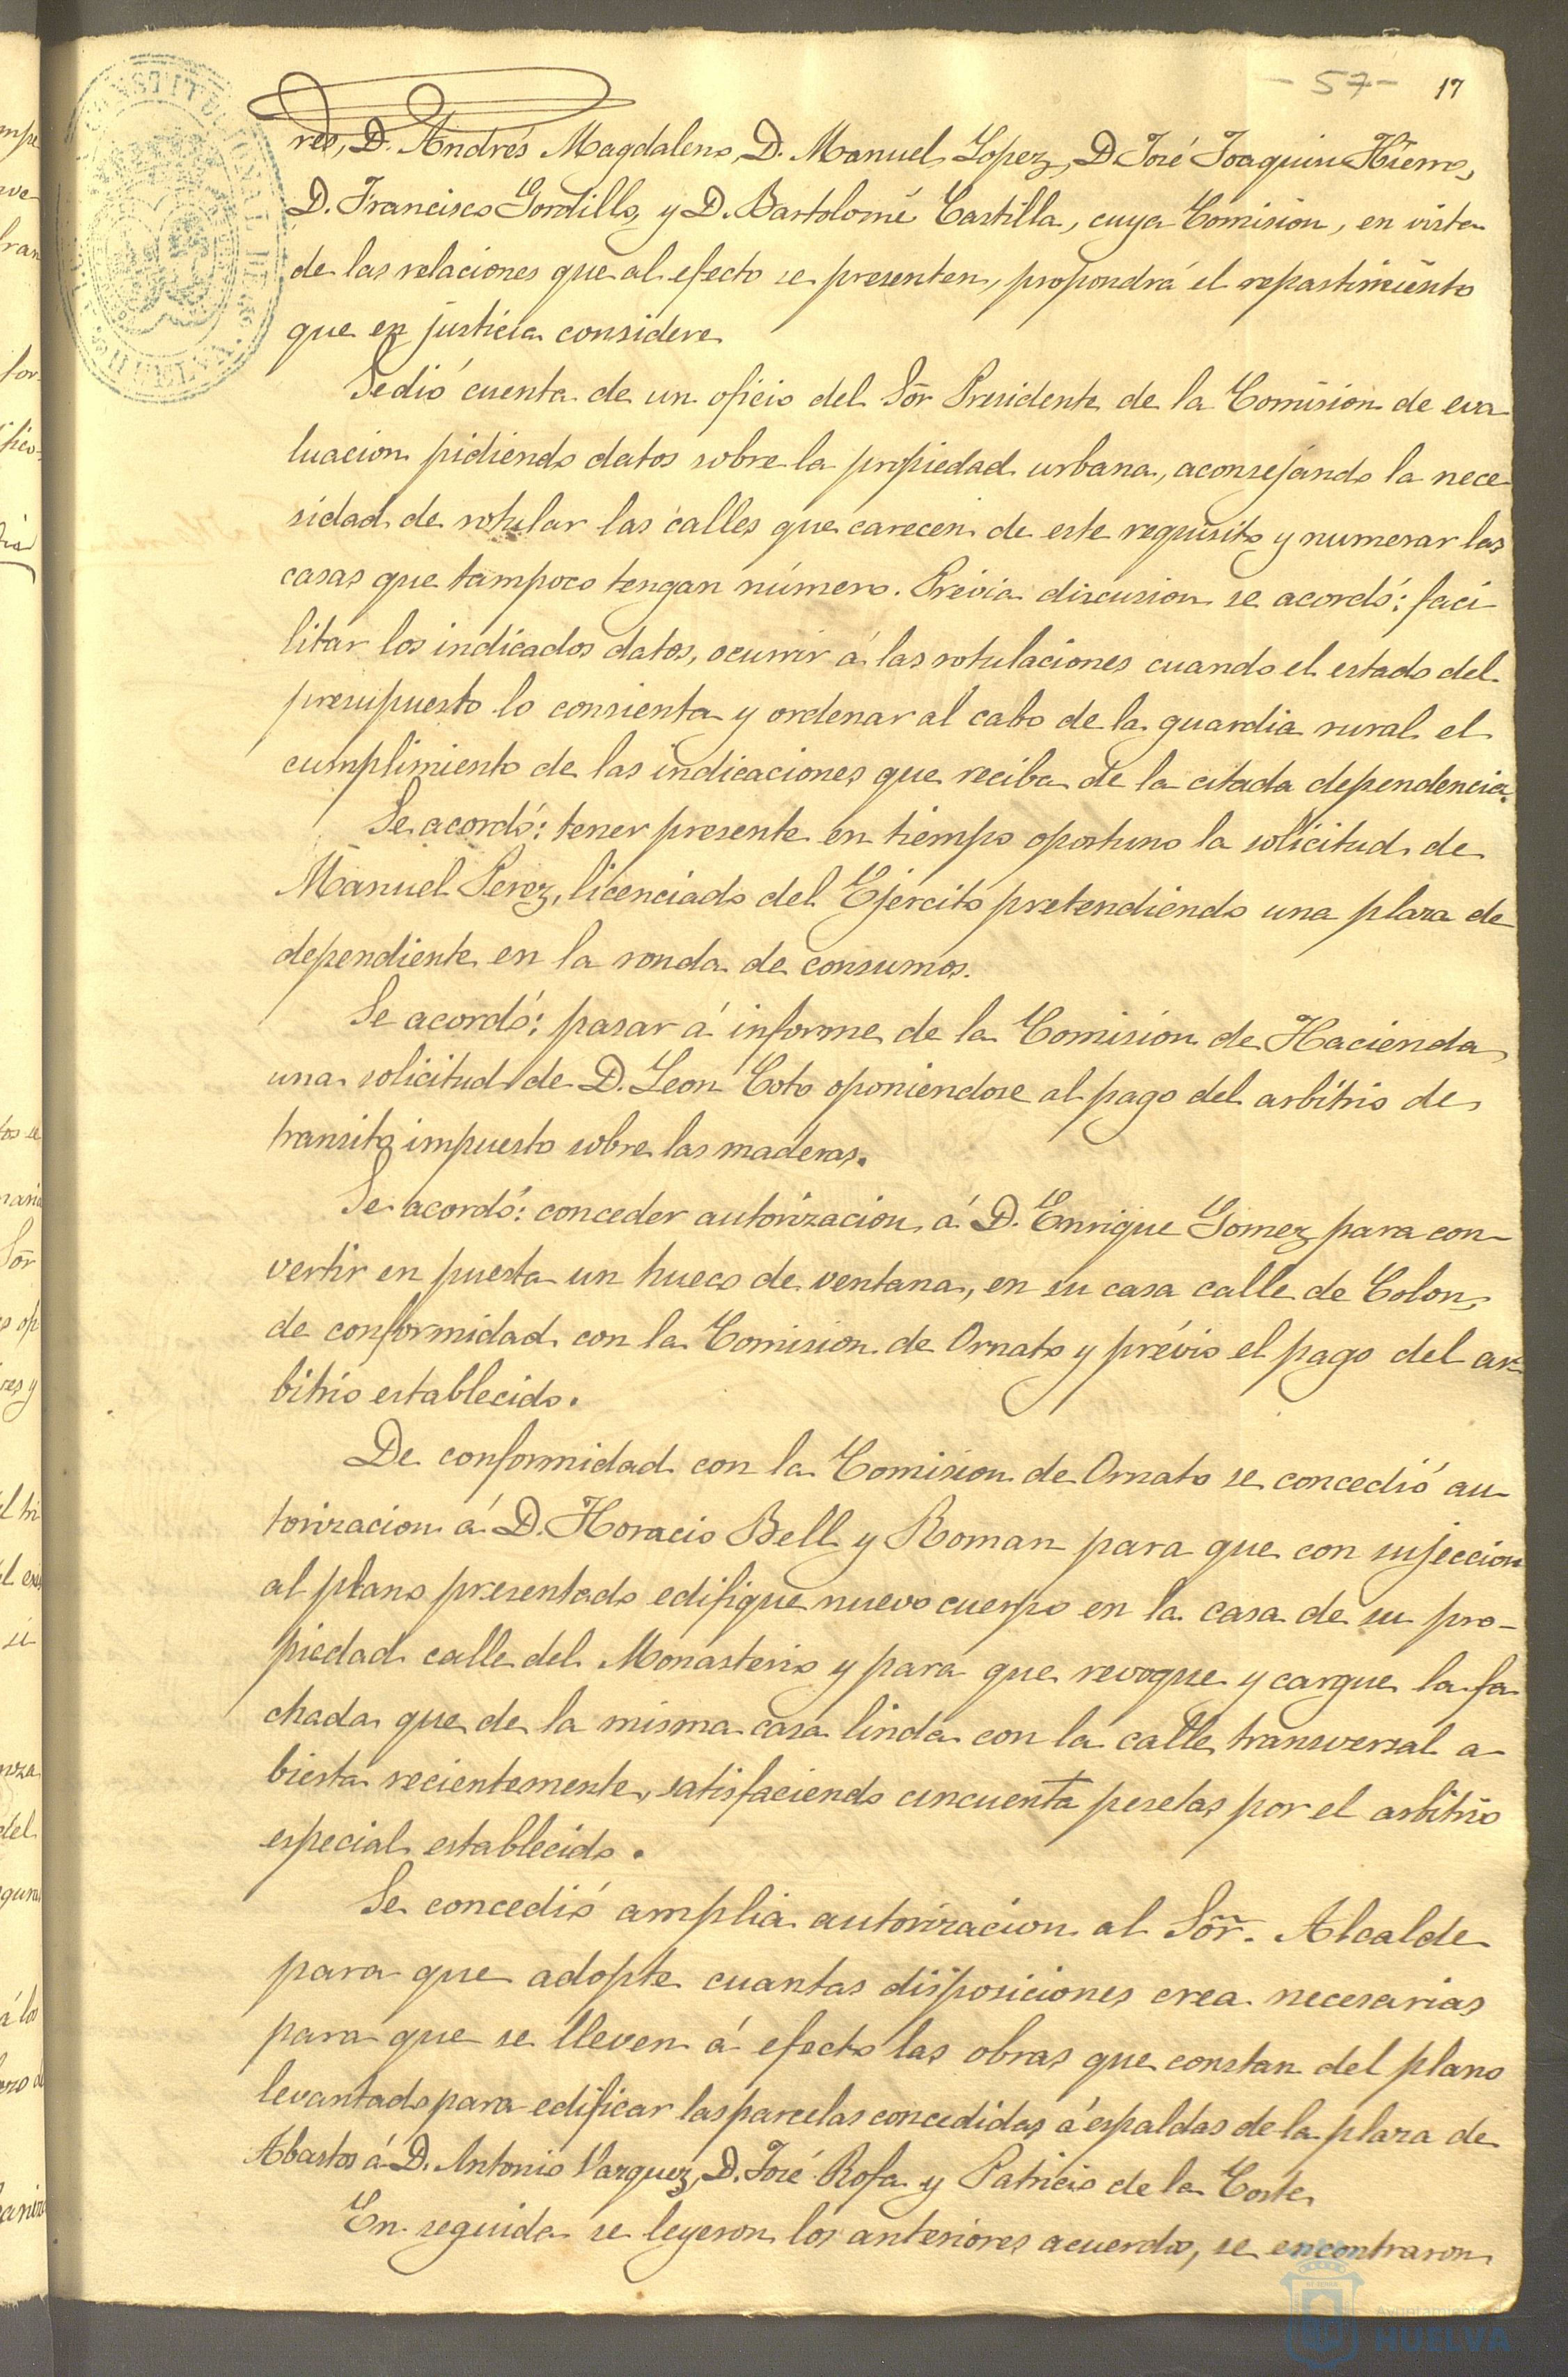 - 57 - 17
res, D. Andrés Magdaleno, D. Manuel Lopez, D. José Joaquin Hierro,
D. Francisco Gordillo, y D. Bartolomé Castilla, cuya Comision, en vista
de las relaciones que al efecto se presenten, propondrá el repartimiento
que en justicia considere
Se dió cuenta de un oficio del Sõr Presidente de la Comision de eva
luacion pidiendo datos sobre la propiedad urbana, aconsejando la nece
sidad de rotular las calles que carecen de este requisito y numerar las
casas que tampoco tengan número. Prévia discusion se acordó: faci
litar los indicados datos, ocurrir á las rotulaciones cuando el estado del
presupuesto lo consienta y ordenar al cabo de la guardia rural el
cumplimiento de las indicaciones que reciba de la citada dependencia.
Se acordó: tener presente en tiempo oportuno la solicitud de
Manuel Perez, licenciado del Ejercito pretendiendo una plaza de
dependiente en la ronda de consumos.
Se acordó: pasar á informe de la Comision de Hacienda
una solicitud de D. Leon Coto oponiendose al pago del arbitrio de
transito impuesto sobre las maderas.
Se acordó: conceder autorizacion á D. Enrique Gomez para con-
vertir en puerta un hueco de ventana, en su casa calle de Colon,
de conformidad con la Comision de Ornato y prévio el pago del ar-
bitrio establecido.
De conformidad con la Comision de Ornato se concedió au-
torizacion á D. Horacio Bell y Roman para que con sujeccion
al plano presentado edifique nuevo cuerpo en la casa de su pro-
piedad calle del Monasterio y para que revoque y cargue la fa
chada que de la misma casa linda con la calle transversal a-
bierta recientemente, satisfaciendo cincuenta pesetas por el arbitrio
especial establecido.
Se concedió amplia autorizacion al Sõr. Alcalde
para que adopte cuantas disposiciones crea necesarias
para que se lleven á efecto las obras que constan del plano
levantado para edificar las parcelas concedidas á espaldas de la plaza de
Abastos á D. Antonio Vazquez, D. José Rofa y Patricio de la Corte
En seguida se leyeron los anteriores acuerdos, se encontraron
Ayuntamiento
HUELVA